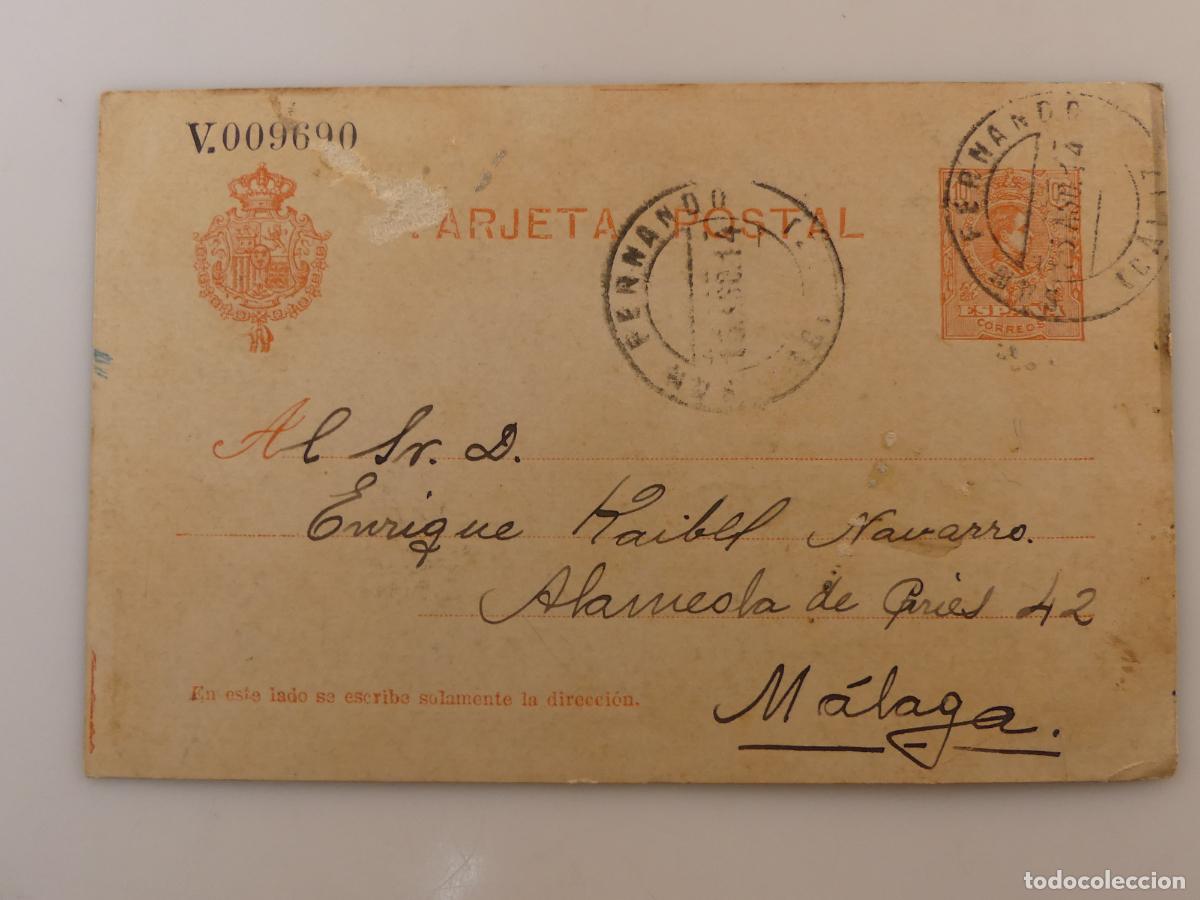 V.009690
TARJETA POSTAL
SAN FERNANDO
AGO.14
SAN FERNANDO
(CADIZ)
AGO.14
ESPAÑA
CORREOS
Al Sr. D.
Enrique Kaibel Navarro.
Alameda de 42
Málaga.
En este lado se escribe solamente la dirección.
todocoleccion